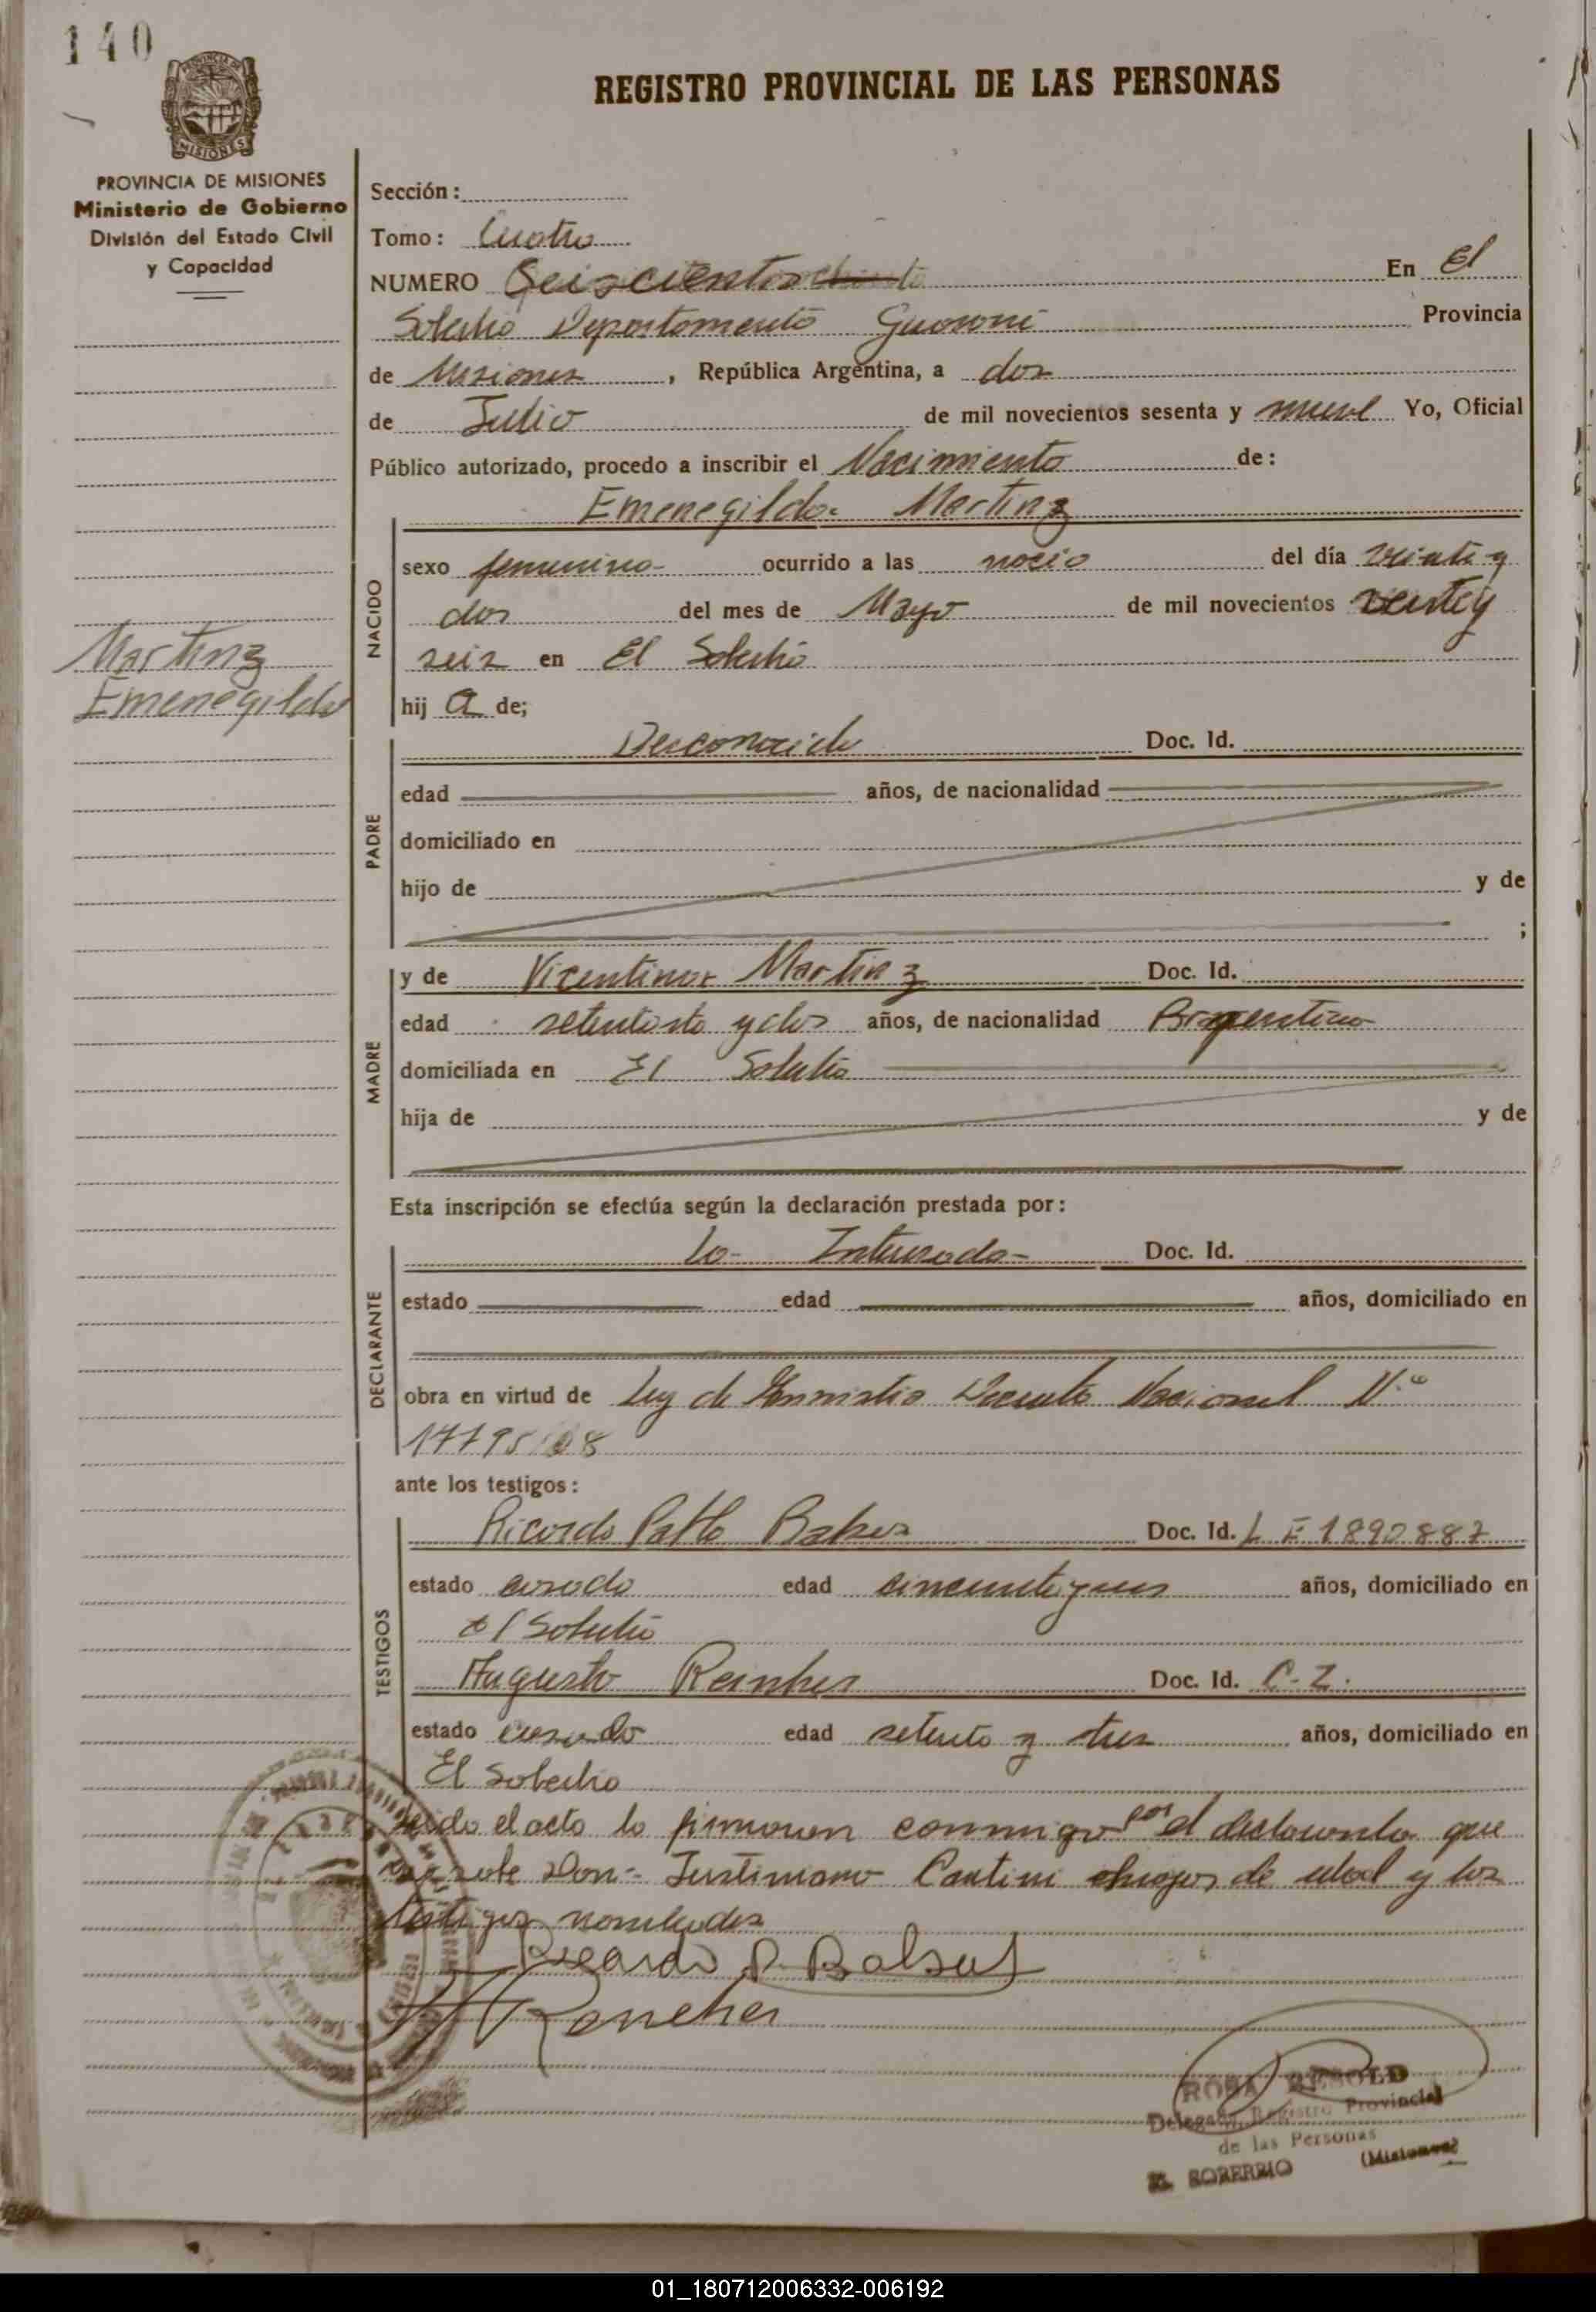 140
REGISTRO PROVINCIAL DE LAS PERSONAS
PROVINCIA DE MISIONES
MISIONES
PROVINCIA DE MISIONES
Ministerio de Gobierno
División del Estado Civil
y Capacidad
Sección:
Tomo: Cuatro
NUMERO Seiscientos En El
Soberbio Departamento Guarani Provincia
de Misiones, República Argentina, a dos
de Julio de mil novecientos sesenta y nueve Yo, Oficial
Público autorizado, procedo a inscribir el Nacimiento de:
Emenegilda Martinz
NACIDO
sexo femenino ocurrido a las del día veinte y
dos del mes de Mayo de mil novecientos veinte y
seis en El Soberbio
Martinz
Emenegilda
hij a de;
PADRE
Desconocido Doc. Id.
edad años, de nacionalidad
domiciliado en
hijo de y de
;
MADRE
y de Vicentina Martinz Doc. Id.
edad y dos años, de nacionalidad Argentina
domiciliada en El Soberbio
hija de y de
Esta inscripción se efectúa según la declaración prestada por:
DECLARANTE
la Interesada Doc. Id.
estado edad años, domiciliado en
obra en virtud de Ley de Amnistia Decreto Nacional N.º
ante los testigos:
TESTIGOS
Ricardo Pablo Doc. Id. L E 1890887
estado casado edad años, domiciliado en
El Soberbio
Augusto Doc. Id. C. I.
estado casado edad setenta y tres años, domiciliado en
El Soberbio
Leido el acto lo firmaron conmigo por el declarante que
Don Justiniano de edad y los
testigos nombrados
Ricardo P.
ROSA
Delegada Registro Provincial
de las Personas
EL SOBERBIO (Misiones)
01_180712006332-006192